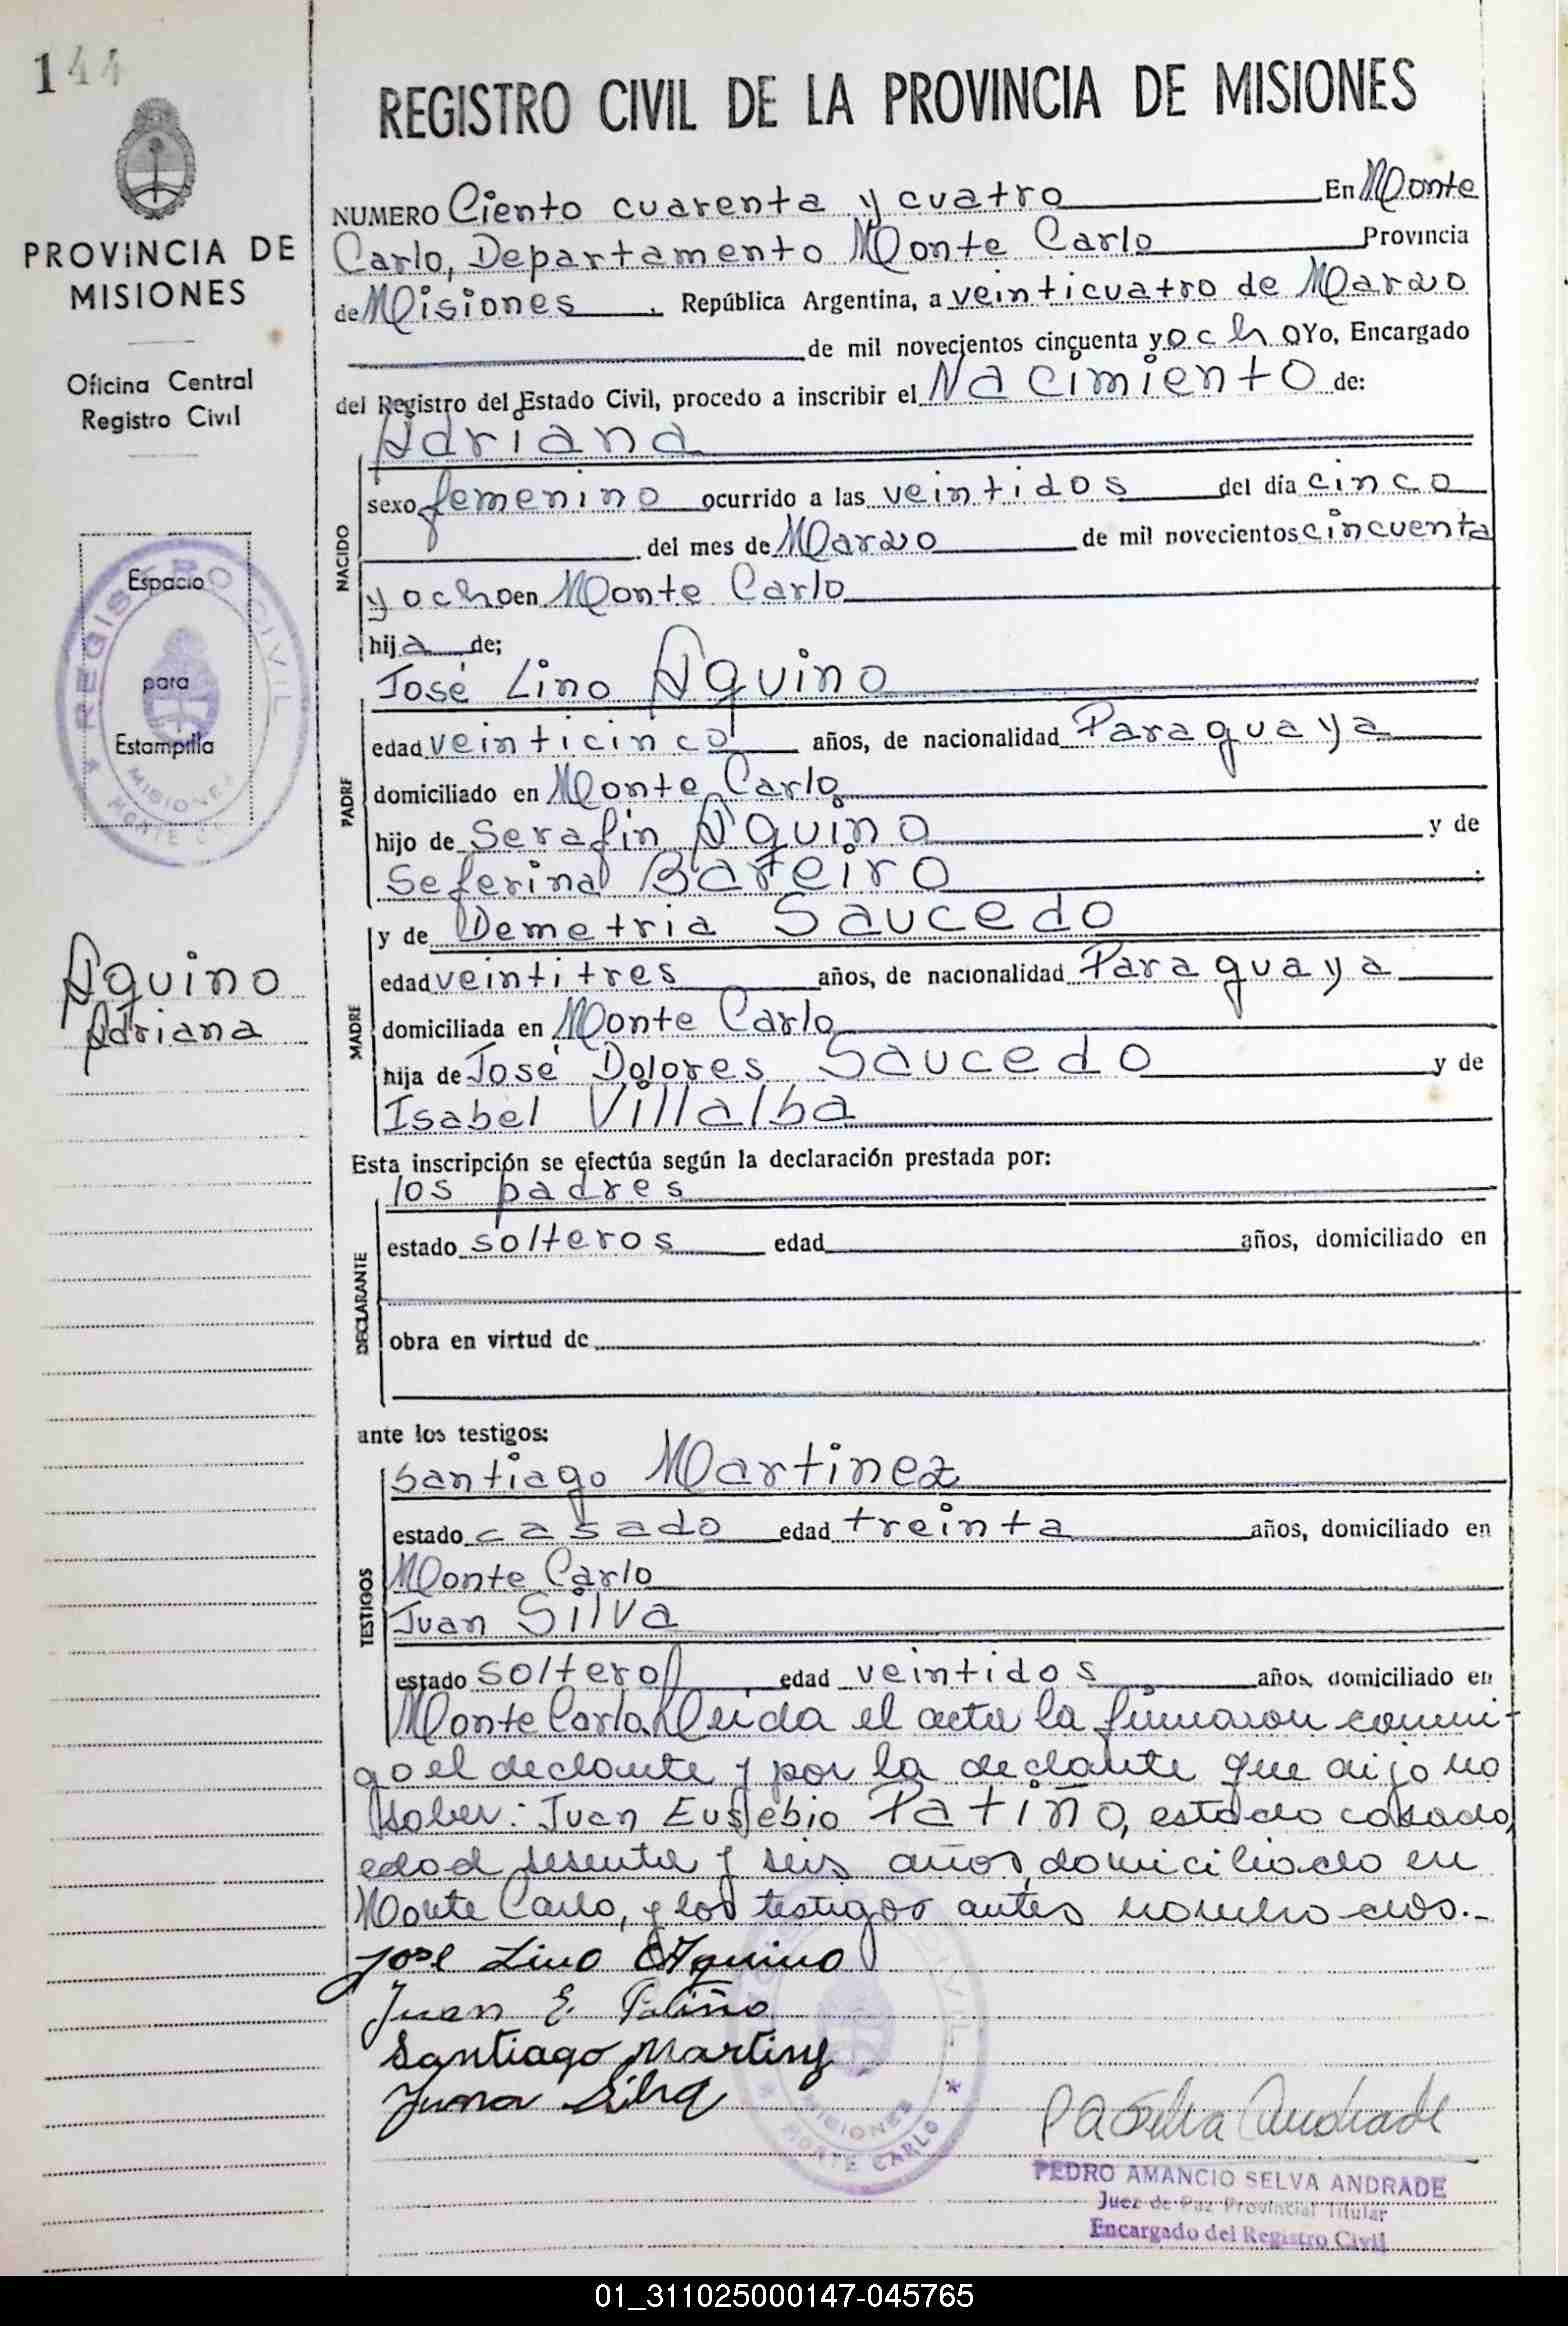 144
PROVINCIA DE
MISIONES
Oficina Central
Registro Civil
Espacio
para
Estampilla
REGISTRO CIVIL
MISIONES
MONTE C
Aquino
Adriana
REGISTRO CIVIL DE LA PROVINCIA DE MISIONES
NUMERO Ciento cuarenta y cuatro En Monte
Carlo, Departamento Monte Carlo Provincia
de Misiones. República Argentina, a veinticuatro de Marzo
de mil novecientos cincuenta y ocho Yo, Encargado
del Registro del Estado Civil, procedo a inscribir el Nacimiento de:
Adriana
NACIDO
sexo femenino ocurrido a las veintidos del día cinco
del mes de Marzo de mil novecientos cincuenta
y ocho en Monte Carlo
hija de;
José Lino Aquino
PADRE
edad veinticinco años, de nacionalidad Paraguaya
domiciliado en Monte Carlo
hijo de Serafin Aquino y de
Seferina Bareiro.
y de Demetria Saucedo
MADRE
edad veintitres años, de nacionalidad Paraguaya
domiciliada en Monte Carlo
hija de José Dolores Saucedo y de
Isabel Villalba
Esta inscripción se efectúa según la declaración prestada por:
los padres
DECLARANTE
estado solteros edad años, domiciliado en
obra en virtud de
ante los testigos:
TESTIGOS
Santiago Martinez
estado casado edad treinta años, domiciliado en
Monte Carlo
Juan Silva
estado soltero edad veintidos años, domiciliado en
Monte Carlo. Leída el acta la firmaron conmi-
go el declante y por la declante que dijo no
saber: Juan Eusebio Patiño, estado casado,
edad sesenta y seis años, domiciliado en
Monte Carlo, y los testigos antes nombrados.-
José Lino Aquino
Juan E. Patiño
Santiago Martinez
Juan Silva
MISIONES
MONTE CARLO
PASelva Andrade
PEDRO AMANCIO SELVA ANDRADE
Juez de Paz Provincial Titular
Encargado del Registro Civil
01_311025000147-045765